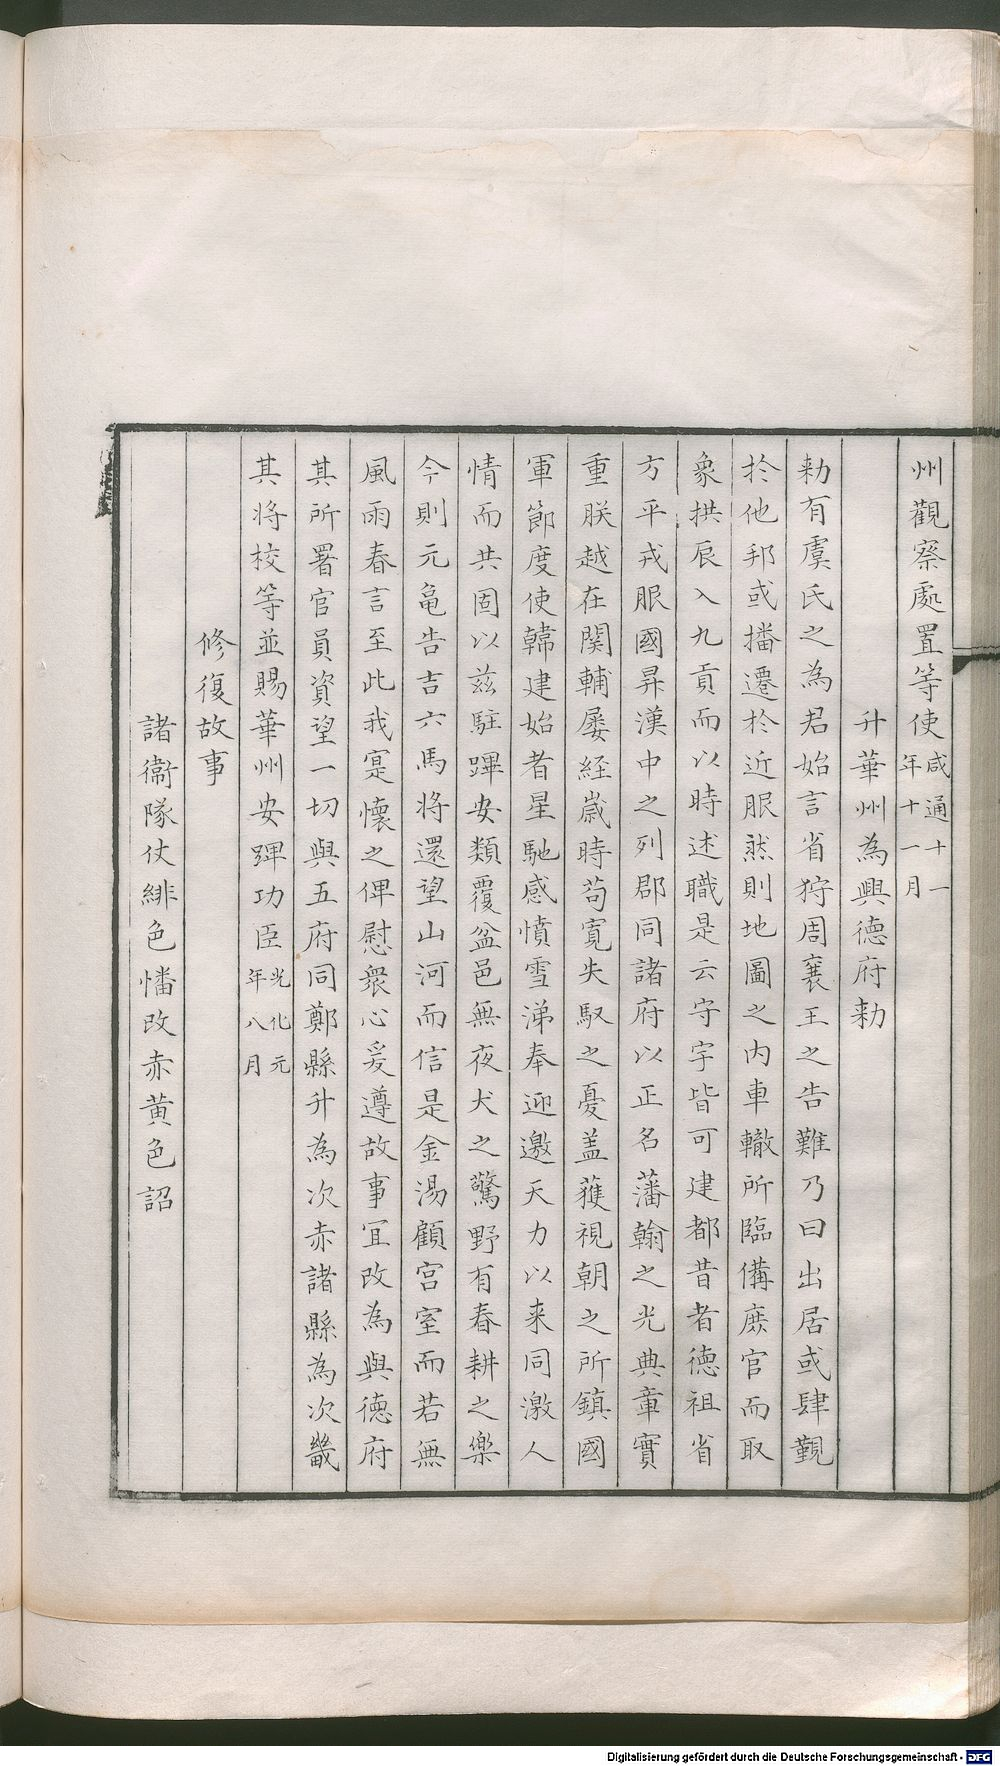 州觀察處置等使咸通十一年十一月
升華州為興德府勑
勑有虞氏之為君始言省狩周襄王之告難乃曰出居或肆覲
扵他邦或播遷扵近服然則地圖之内車轍所臨俻庶官而取
象拱辰入九貢而以時述職是云守宇皆可建都昔者德祖省
方平戎服國昇漢中之列郡同諸府以正名藩翰之光典章實
重朕越在関輔屢経歳時苟寛失馭之憂盖蓷視朝之所鎮國
軍節度使韓建始者星馳感憤雪涕奉迎邀天力以来同激人
情而共固以兹駐蹕安類覆盆邑無夜犬之驚野有春耕之樂
今則元龜告吉六馬将還望山河而信是金湯顧宫室而若無
風雨春言至此我寔懷之俾慰衆心爰遵故事冝改為興德府
其所署官員資望一切與五府同鄭縣升為次赤諸縣為次畿
其将校等並賜華州安蹕功臣光化元年八月
修復故事
諸衛隊仗緋色幡改赤黄色詔
Digitalisierung gefördert durch die Deutsche Forschungsgemeinschaft - DFG